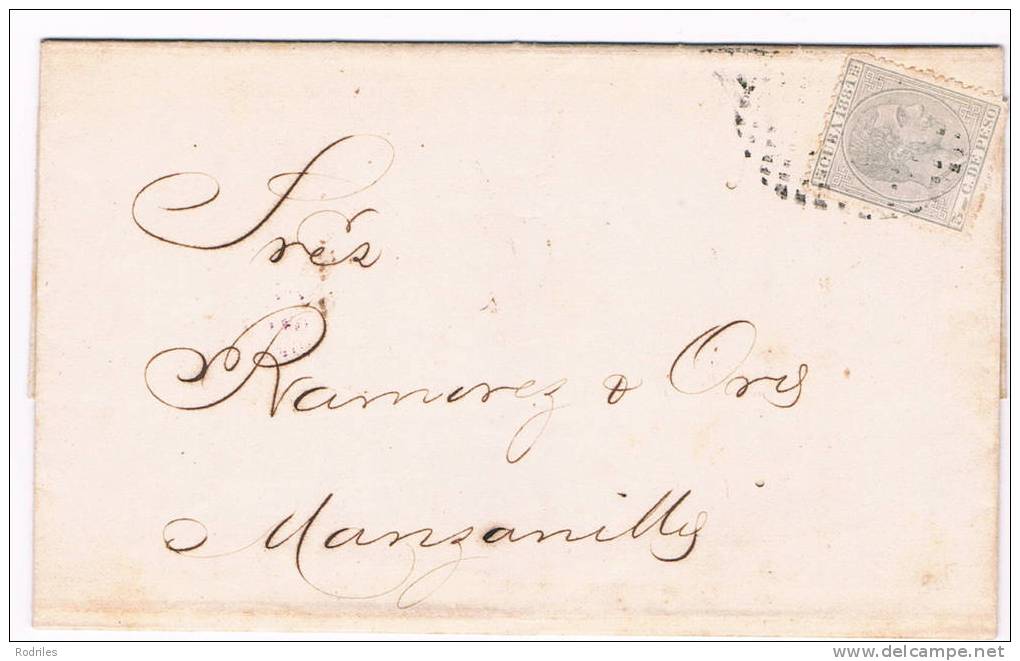 CUBA 1884
5 C. DE PESO
Sres
Ramirez & Oro
Manzanillo
Rodriles
delcampe.net